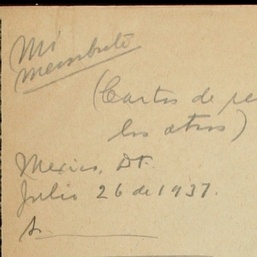 Mi
membrete
(Cartas de re
los otros)
Mexico, D.F.
Julio 26 de 1937.
Sr.